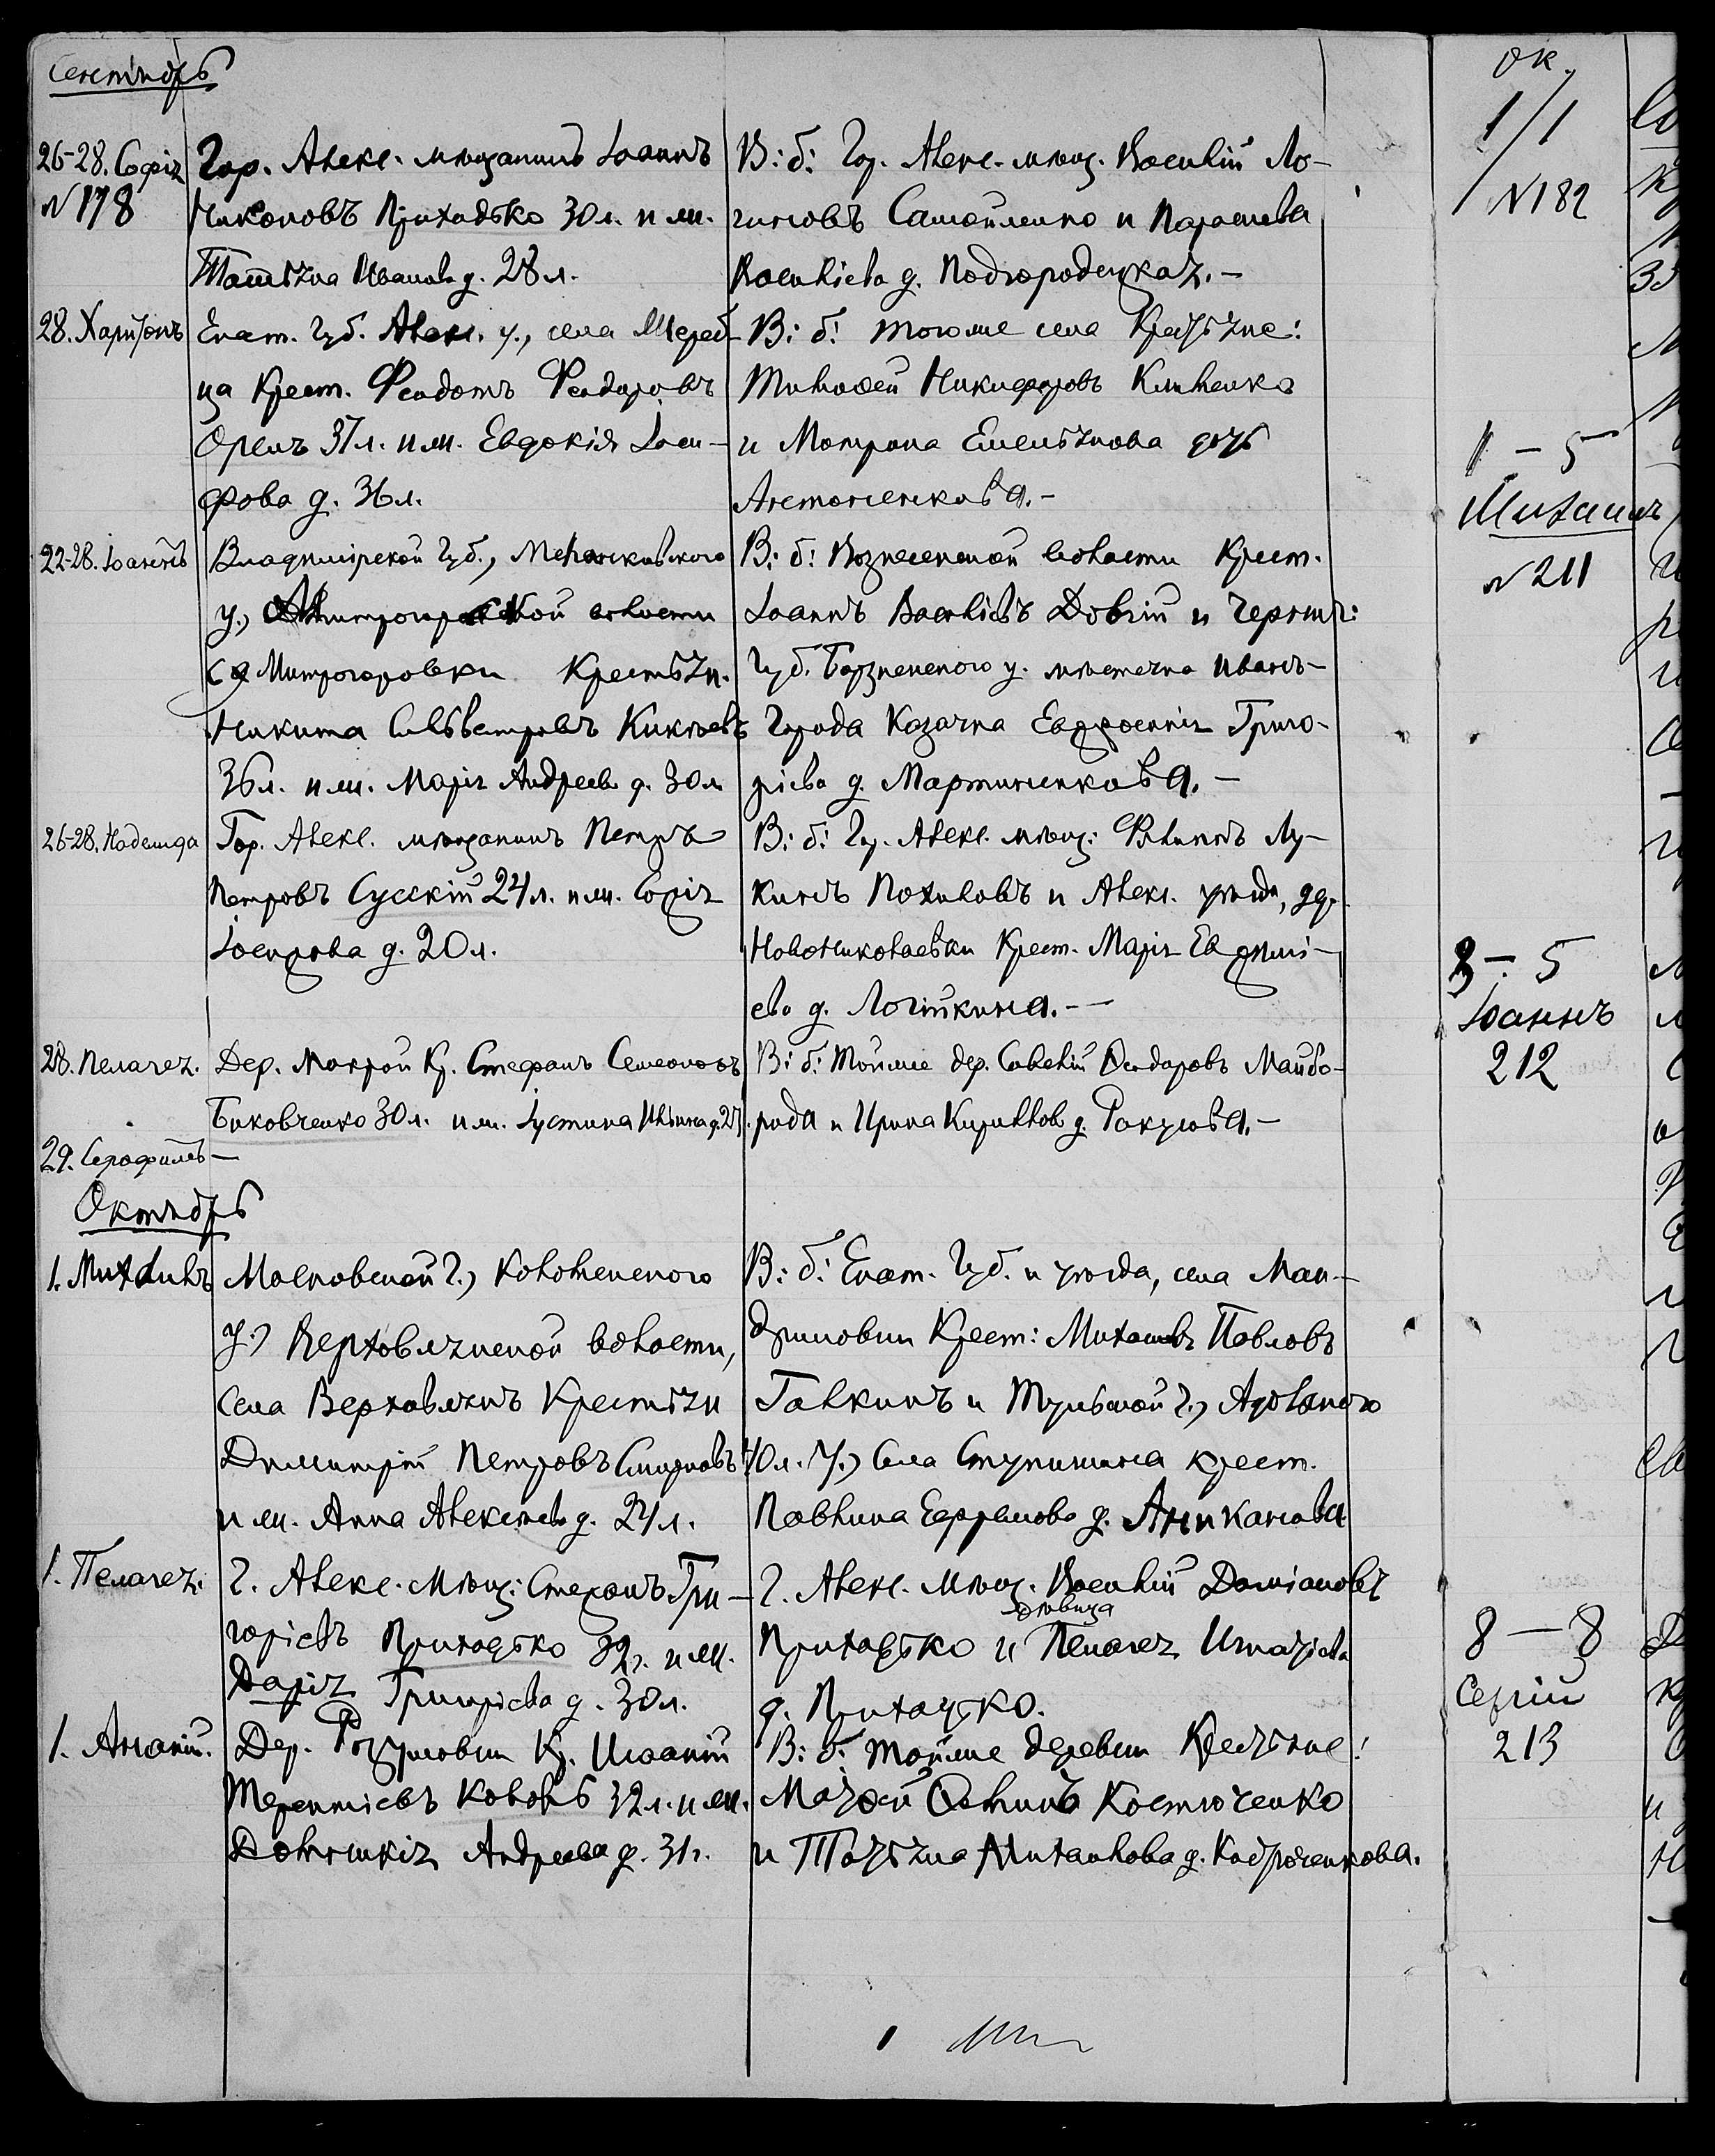 Сентябрь
26-28. Софія
№ 178
Гор. Алекс. мѣщанинъ Іоаннъ
Никоновъ Приходько 30 л. и ж.
Татьяна Иванова д. 28 л.
В: б: Гор. Алекс. мѣщ. Василій Ло-
гиновъ Самойленко и Параскева
Васильева д. Подгородецкая. —
28. Харитонъ
Екат. Губ. Алекс. у., села Шереб-
ца Крест. Феодотъ Феодоровъ
Орелъ 37 л. и ж. Евдокія Іоси-
фова д. 36 л.
В: б: тогоже села Крестьяне:
Тимофей Никифоровъ Клименко
и Матрона Емельянова дочь
Антоненкова. —
22-28. Іоаннъ
Владимірской Губ., Меленковского
у., волости
с. Митрогоровки Крестьян.
Никита Сильвестровъ Кикѣевъ
36 л. и ж. Марія Андреева д. 30 л.
В: б: Вознесенской волости Крест.
Іоаннъ Васильевъ Довгій и Черниг:
Губ. Борзненского у. мѣстечка Иванъ-
Города Козачка Евдокія Григо-
ріева д. Мартиненкова. —
26-28. Надежда
Гор. Алекс. мѣщанинъ Петръ
Петровъ Сусскій 24 л. и ж. Софія
Іосифова д. 20 л.
В: б: Гор. Алекс. мѣщ: Филиппъ Лу-
кинъ Полиновъ и Алекс. уѣзда, дер.
Новониколаевки Крест. Марія Евфимі-
ева д. Логійкина. —
28. Пелагея.
Дер. Мокрой Кр. Стефанъ Семеоновъ
Биковченко 30 л. и ж. Іустина Ильина д. 27.
В: б: Тойже дер. Савелій Феодоровъ Майбо-
рода и Ирина Кириллов. д. Ракусова. —
29. Серафимъ —
Октябрь
1. Михаилъ
Московской г., Коломенского
у., Верховлянской волости,
села Верховлянъ Крестьян
Димитрій Петровъ Смирновъ 40 л.
и ж. Анна Алексеева д. 24 л.
В: б: Екат. Губ. и уѣзда, села Ман-
дриковки Крест: Михаилъ Павловъ
Галкинъ и Тульской г.,
у., села Ступишина крест.
Павлина Ефремова д. Аниканова
1. Пелагея.
г. Алекс. мѣщ: Стефанъ Гри-
горіевъ Приходько 32 г. и ж.
Дарія Григоріева д. 30 л.
г. Алекс. мѣщ. Василій Даміановъ
Приходько и дѣвица Пелагея Игнатіева
д. Приходько.
1. Ананій.
Дер. Розумовки Кр. Іоанній
Терентіевъ Коволь 32 л. и ж.
Домникія Андреева д. 31 г.
В: б: тойже деревни Крестьяне:
Матфей Костюченко
и Татьяна Михаилова д. Кобрюченкова.
ок.
1/1
№ 182
1 — 5
Михаилъ
№ 211
3 — 5
Іоаннъ
212
8 — 8
Сергій
213